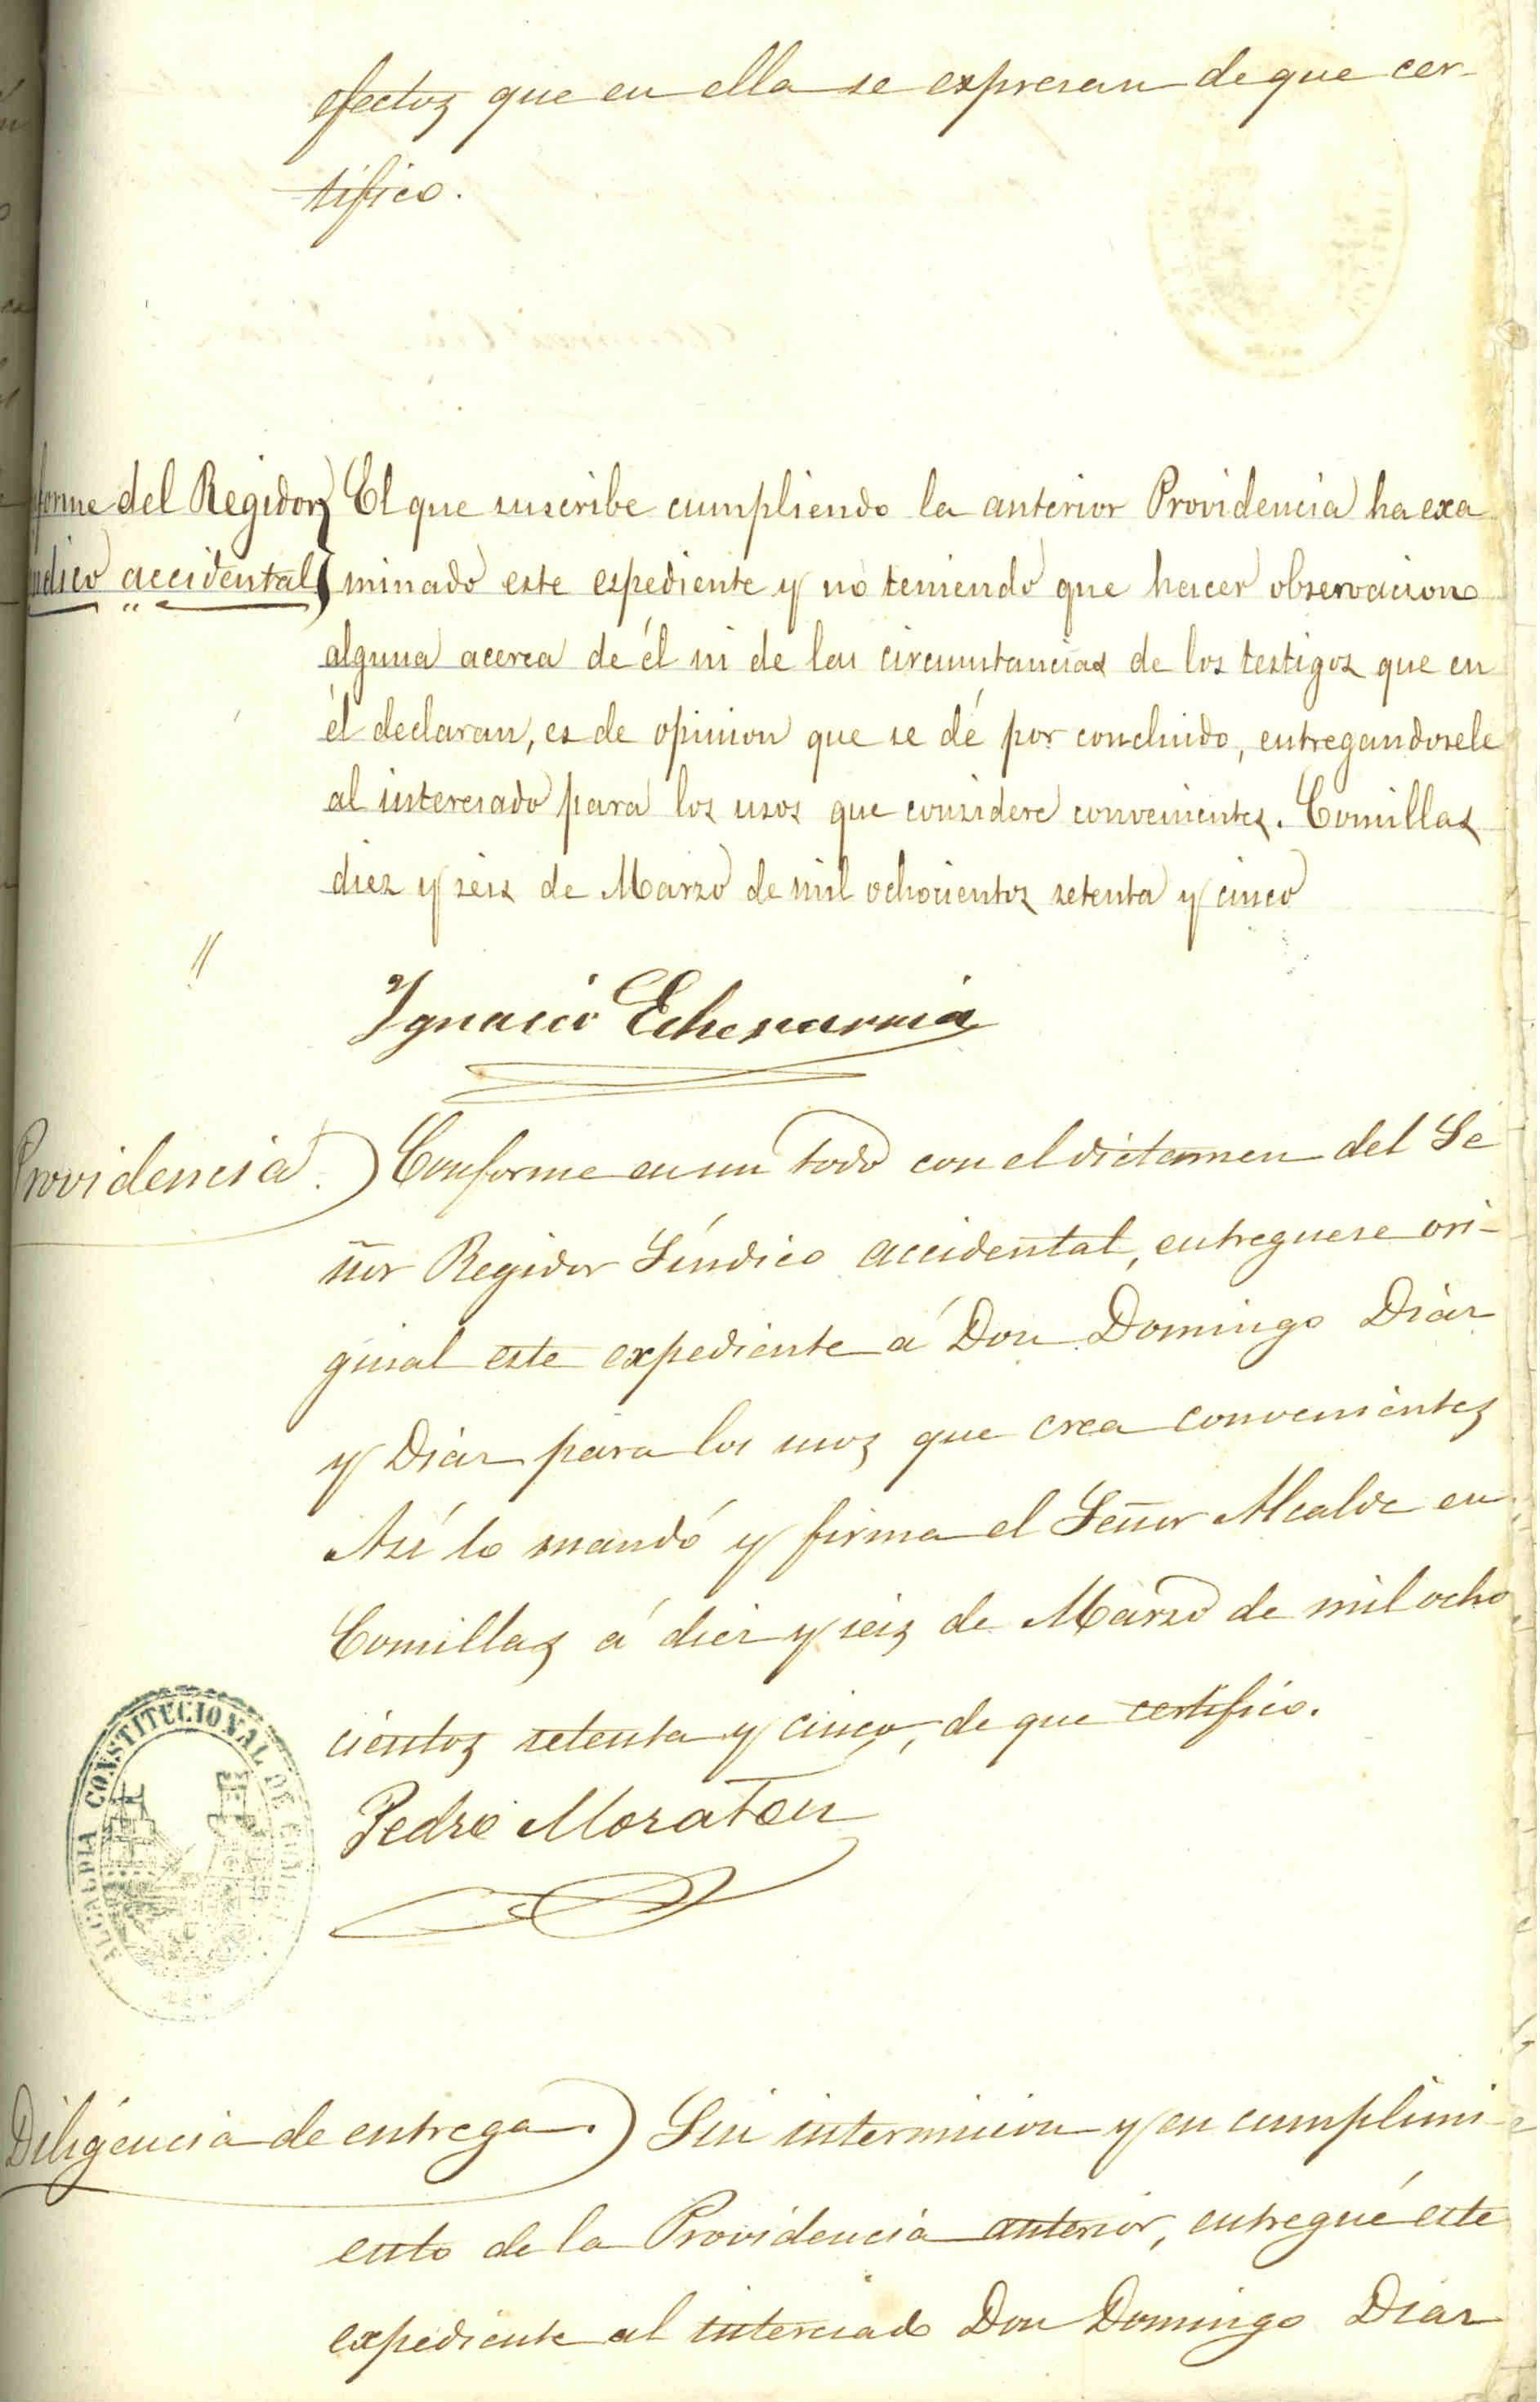 efectos que en ella se expresan de que cer-
tifico.
forme del Regidor
ndico accidental
El que suscribe cumpliendo la anterior Providencia ha exa
minado este espediente y no teniendo que hacer observacion
alguna acerca de él ni de las circunstancias de los testigos que en
él declaran, es de opinion que se dé por concluido, entregandosele
al interesado para los usos que considere convenientes. Comillas
diez y seis de Marzo de mil ochocientos setenta y cinco
Ygnacio Echevarria
Providencia.) Conforme en un todo con el dictamen del Se
ñor Regidor Síndico accidental, entreguese ori-
ginal este expediente á Don Domingo Diaz
y Diaz para los usos que crea convenientes
Así lo mandó y firma el Señor Alcalde en
Comillas á diez y seis de Marzo de mil ocho
cientos setenta y cinco, de que certifico.
Pedro Moraton
ALCALDIA CONSTITUCIONAL DE
Diligencia de entrega.) Sin intermision y en cumplimi-
ento de la Providencia anterior, entregué este
expediente al interesado Don Domingo Diaz